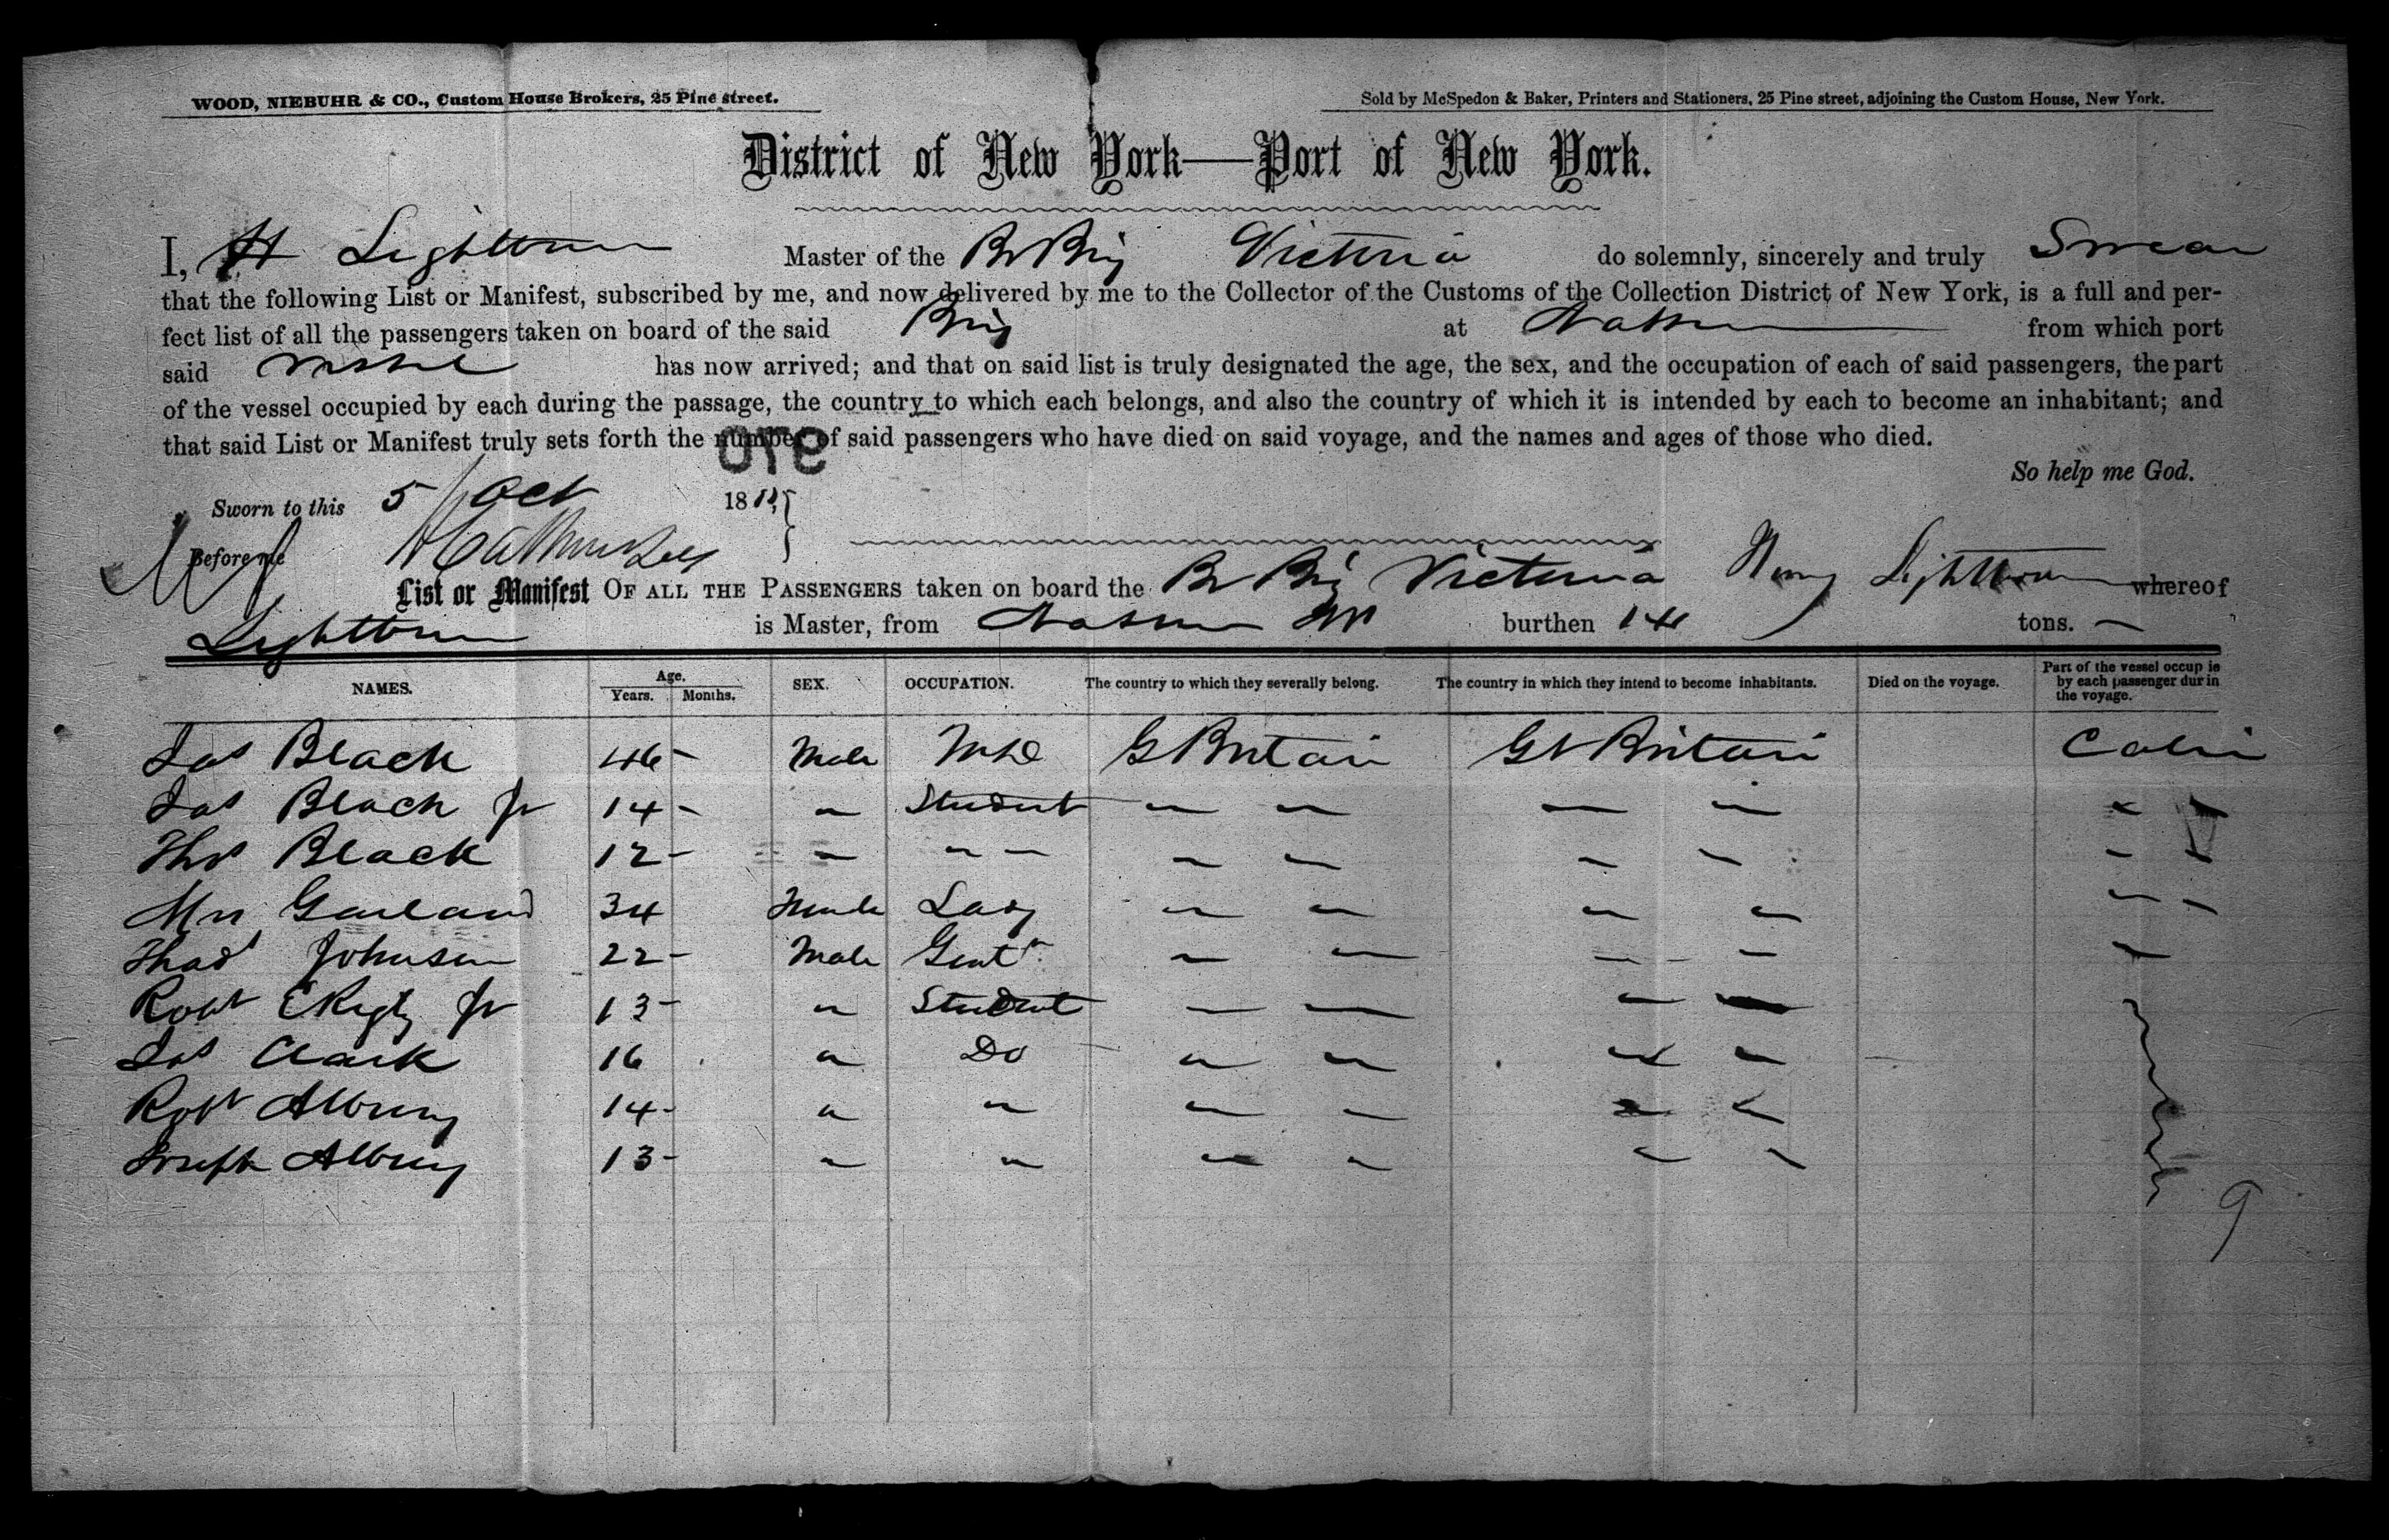 WOOD, NIEBUHR & CO., Custom House Brokers, 25 Pine street. Sold by McSpedon & Baker, Printers and Stationers, 25 Pine street, adjoining the Custom House, New York.
District of New York—Port of New York.
I, H Lightbourn Master of the Br Brig Victoria do solemnly, sincerely and truly Swear
that the following List or Manifest, subscribed by me, and now delivered by me to the Collector of the Customs of the Collection District of New York, is a full and per-
fect list of all the passengers taken on board of the said Brig at Nassau from which port
said vessel has now arrived; and that on said list is truly designated the age, the sex, and the occupation of each of said passengers, the part
of the vessel occupied by each during the passage, the country to which each belongs, and also the country of which it is intended by each to become an inhabitant; and
that said List or Manifest truly sets forth the number of said passengers who have died on said voyage, and the names and ages of those who died.
970
So help me God.
Sworn to this 5 Oct 18
Before me
List or Manifest OF ALL THE PASSENGERS taken on board the Br Brig Victoria Henry Lightbourn whereof
Lightbourn is Master, from Nassau NP burthen 141 tons. —
NAMES. Age. Years. Months. SEX. OCCUPATION. The country to which they severally belong. The country in which they intend to become inhabitants. Died on the voyage. Part of the vessel occup ie by each passenger dur in the voyage.
Jas Black 46 - Male G Britain Gt Britain Cabin
Jas Black Jr 14 - " Student " " " " " "
Thos Black 12 - " " " " " " " " "
Mrs Garland 34 Female Lady " " " " " "
Thad Johnson 22 - Male Gentn " " " " "
Robt Jr 13 - " Student " " " "
Jas Clark 16 " Do " " " "
Robt Albury 14 - " " " " " "
Joseph Albury 13 - " " " " " "
9